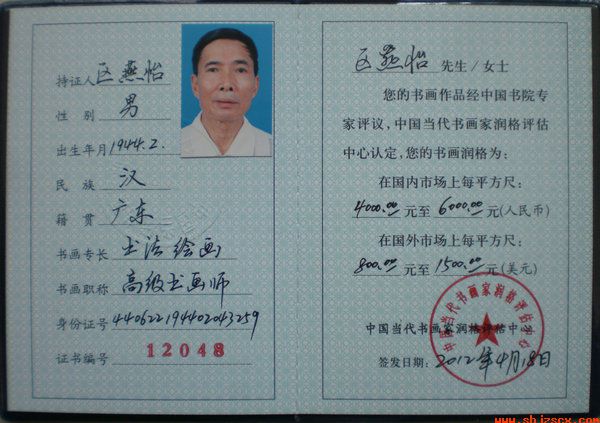 持证人 区燕怡
性别 男
出生年月 1944.2.
民族 汉
籍贯 广东
书画专长 书法绘画
书画职称 高级书画师
身份证号 440622194402043259
证书编号 12048
区燕怡 先生/女士
您的书画作品经中国书院专
家评议，中国当代书画家润格评估
中心认定，您的书画润格为：
在国内市场上每平方尺：
4000.00 元至 6000.00 元(人民币)
在国外市场上每平方尺：
800.00 元至 1500.00 元(美元)
中国当代书画家润格评估中心
中国当代书画家润格评估中心
签发日期：2012年4月18日
www.shjzscx.com